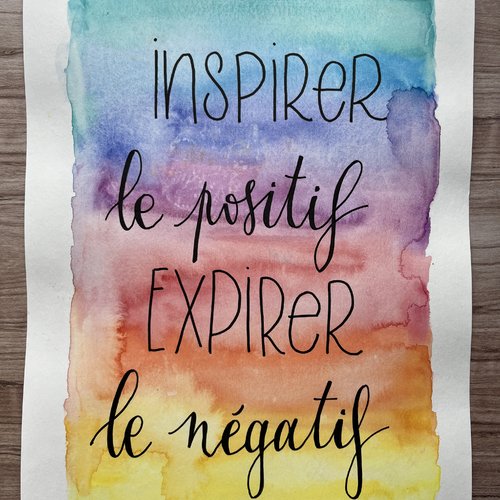 INSPIRER
le positif
EXPIRER
le négatif